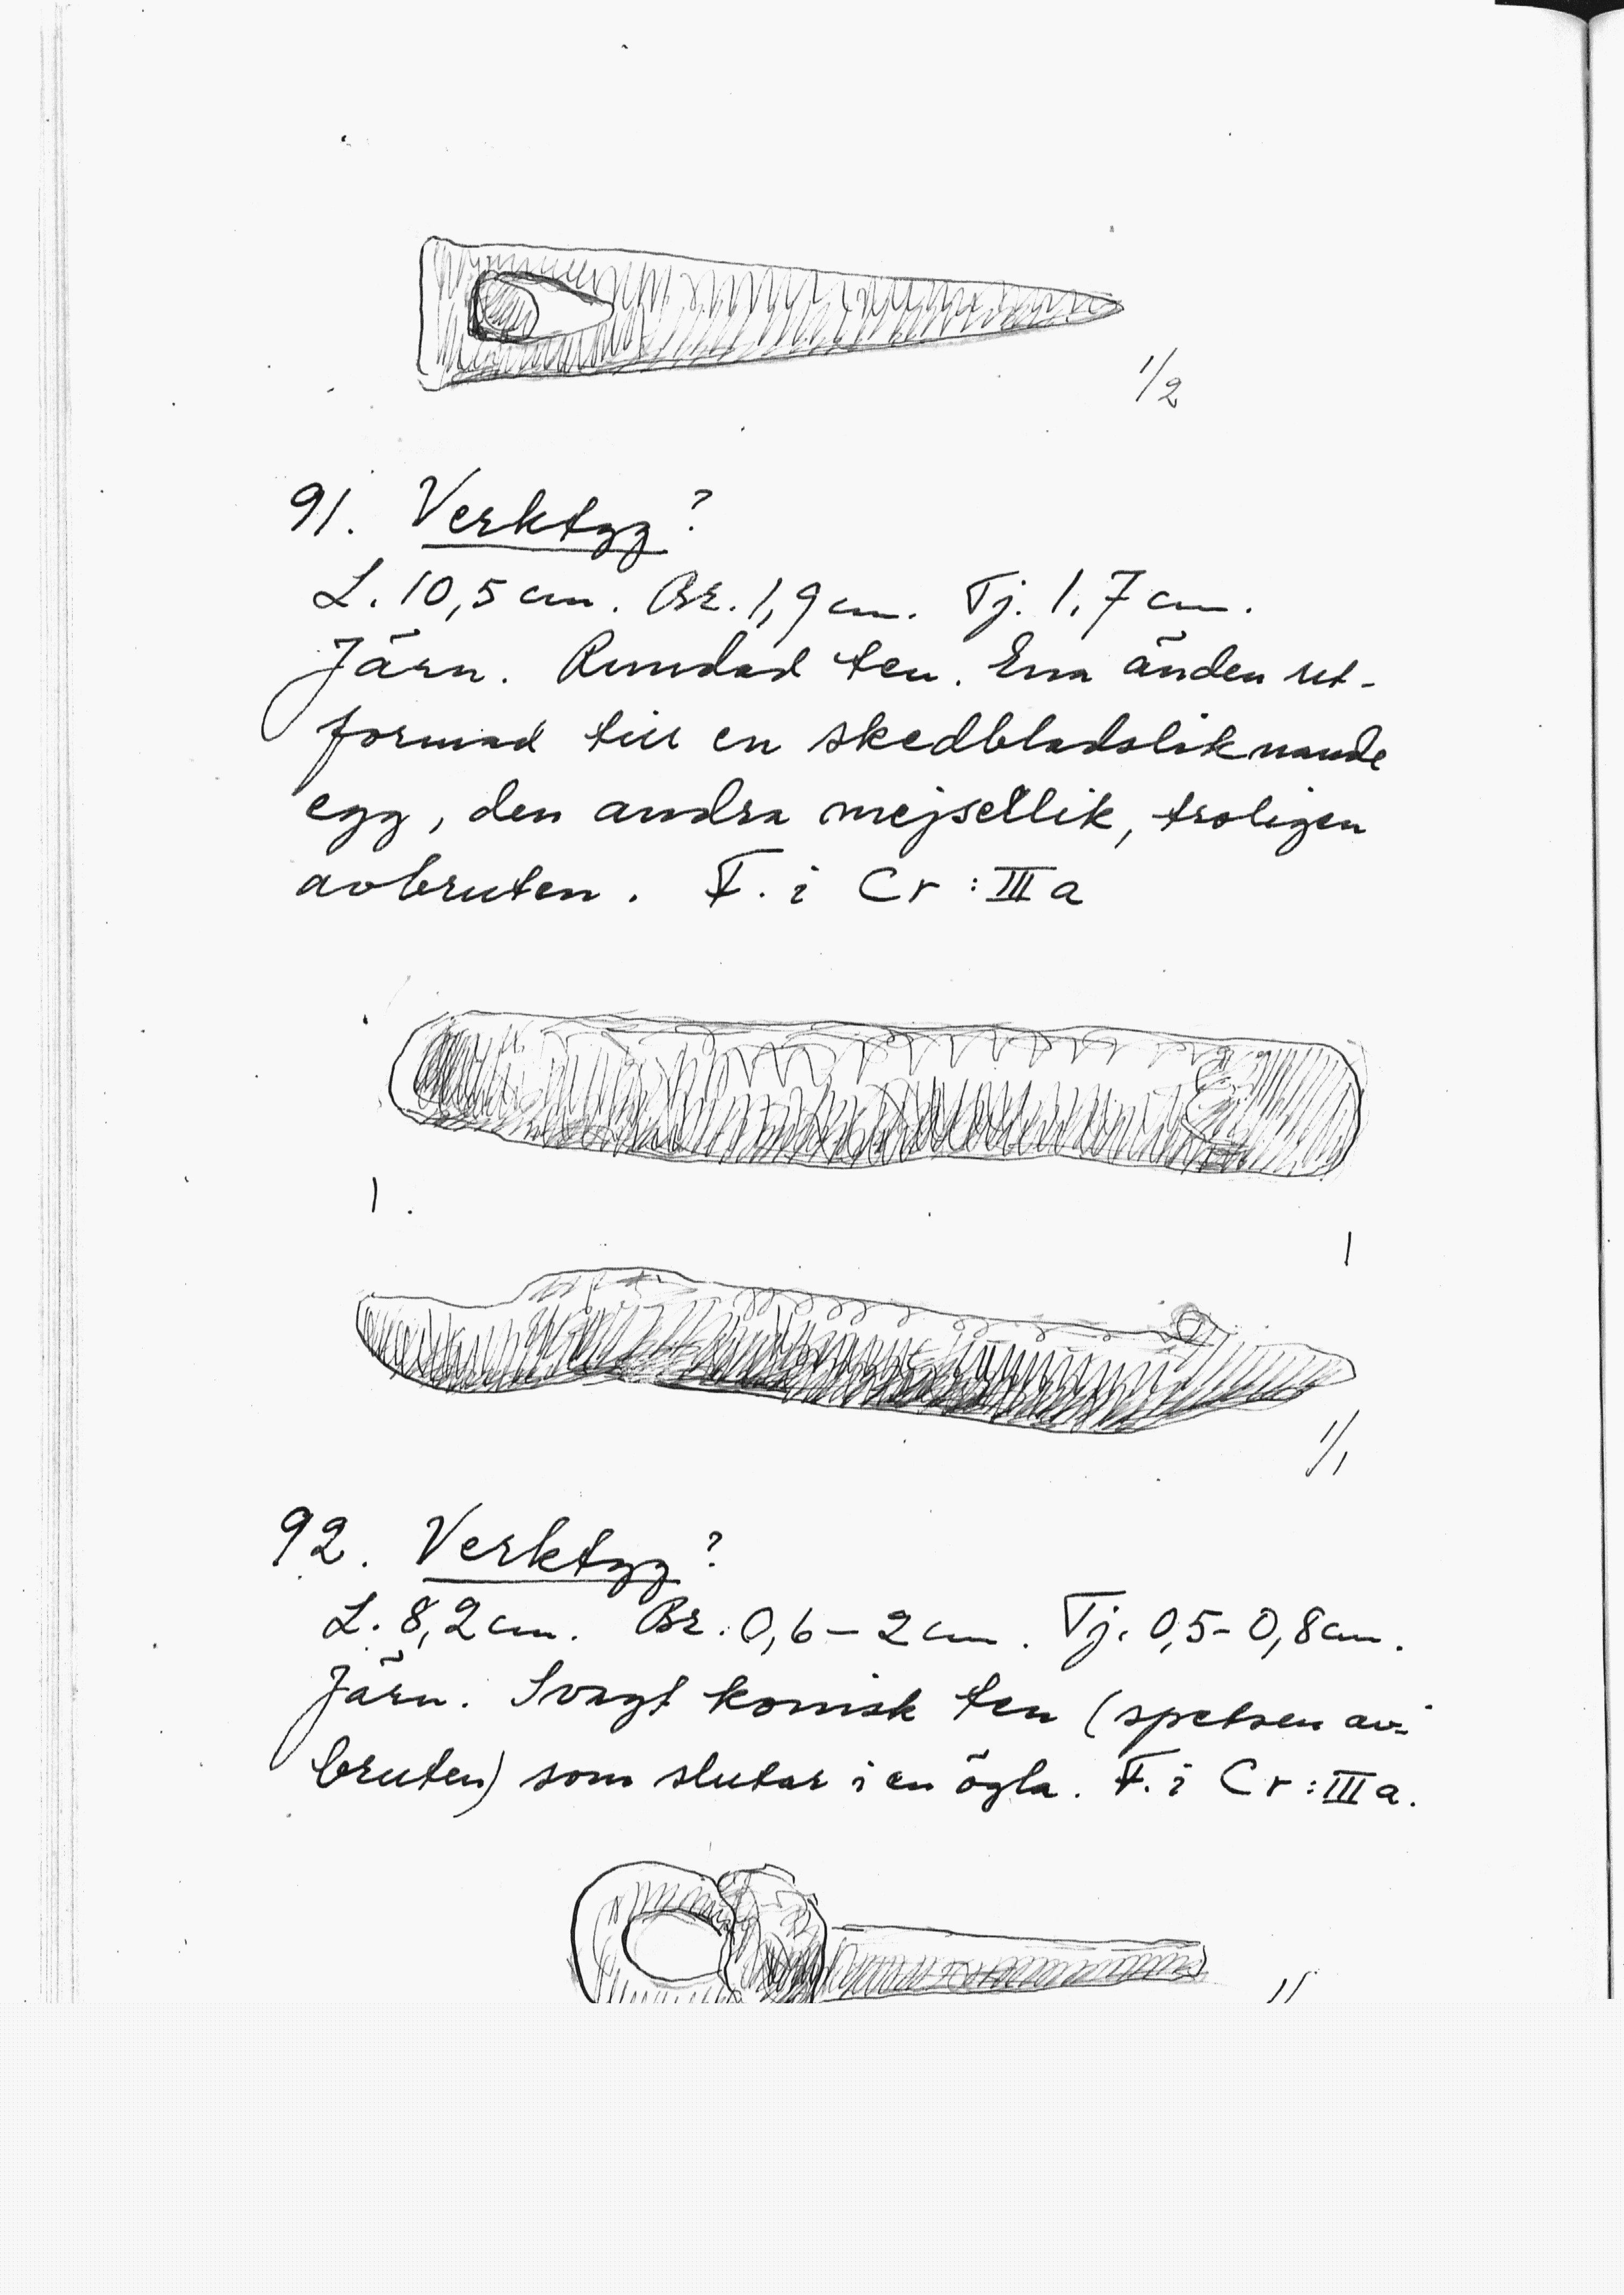 1/2
91. Verktyg?
L. 10,5 cm. Br. 1,9 cm. Tj. 1,7 cm.
Järn. Rundad ten. Ena änden ut-
formad till en skedbladsliknande
egg, den andra mejsellik, troligen
avbruten. F. i Cr : III a
1/1
92. Verktyg?
L. 8,2 cm. Br. 0,6 – 2 cm. Tj. 0,5 - 0,8 cm.
Järn. Svagt konisk ten (spetsen av-
bruten) som slutar i en ögla. F. i Cr : III a.